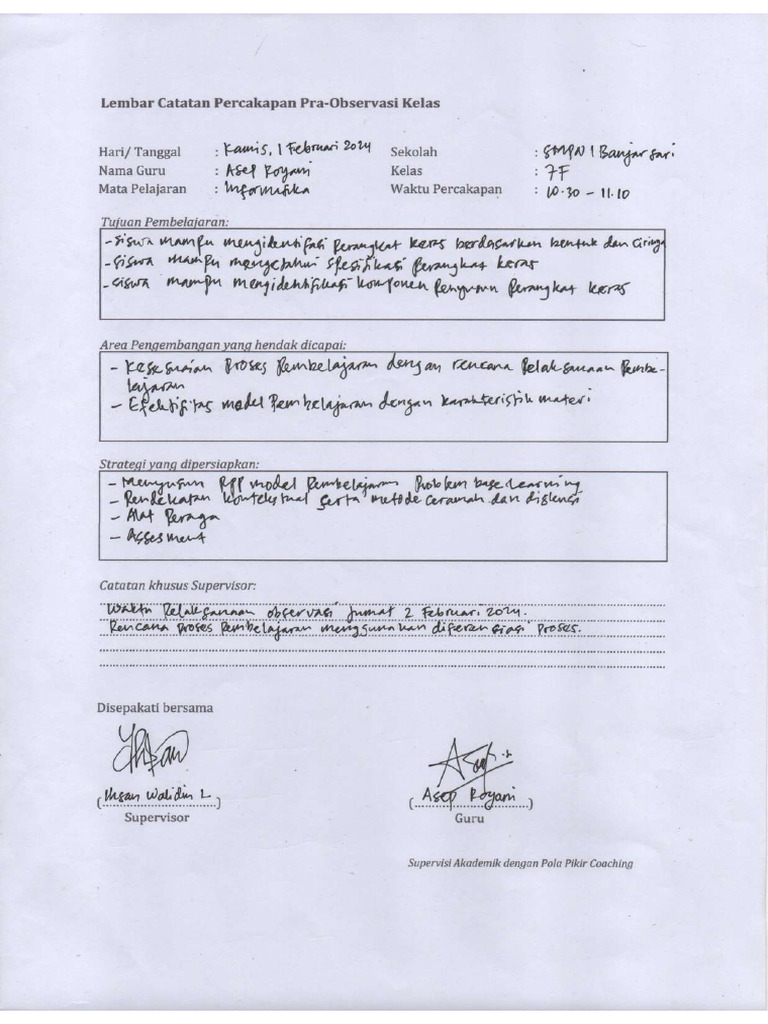 Lembar Catatan Percakapan Pra-Observasi Kelas
Hari/ Tanggal : Kamis, 1 Februari 2024 Sekolah : SMPN 1 Banjarsari
Nama Guru : Asep Royani Kelas : 7F
Mata Pelajaran : Informatika Waktu Percakapan : 10.30 - 11.10
Tujuan Pembelajaran:
- Siswa mampu mengidentifasi perangkat keras berdasarkan bentuk dan cirinya
- Siswa mampu mengetahui spesifikasi perangkat keras
- Siswa mampu mengidentifikasi komponen penyusun perangkat keras
Area Pengembangan yang hendak dicapai:
- Kesesuaian Proses Pembelajaran dengan rencana Pelaksanaan Pembe-
lajaran
- Efektifitas model Pembelajaran dengan karakteristik materi
Strategi yang dipersiapkan:
- Menyusun RPP model Pembelajaran Problem base Learning
- Pendekatan kontekstual serta metode ceramah dan diskusi
- Alat Peraga
- Assesment
Catatan khusus Supervisor:
Waktu Pelaksanaan observasi Jumat 2 Februari 2024.
Rencana Proses Pembelajaran menggunakan diferensiasi proses.
Disepakati bersama
(Ihsan Walidin L) (Asep Royani)
Supervisor Guru
Supervisi Akademik dengan Pola Pikir Coaching